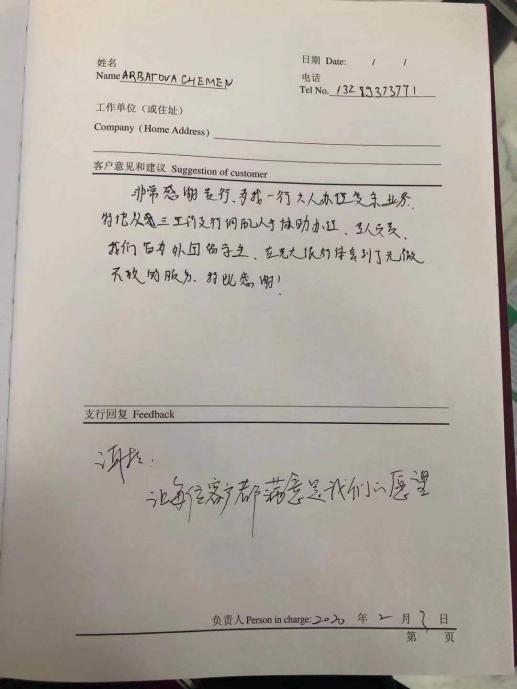 姓名 日期 Date: / /
Name ARBATOVA CHEMEN 电话
Tel No. 13289373771
工作单位（或住址）
Company (Home Address)
客户意见和建议 Suggestion of customer
非常感谢支行,为我一行六人办理复杂业务,
特地从第三工作支行调配人手协助办理,
我们 外国留学生, 在光大银行体会到了无微
不致的服务. 特此感谢!
支行回复 Feedback
让每位客户都满意是我们的愿望
负责人 Person in charge: 2020 年 2 月 3 日
第 页